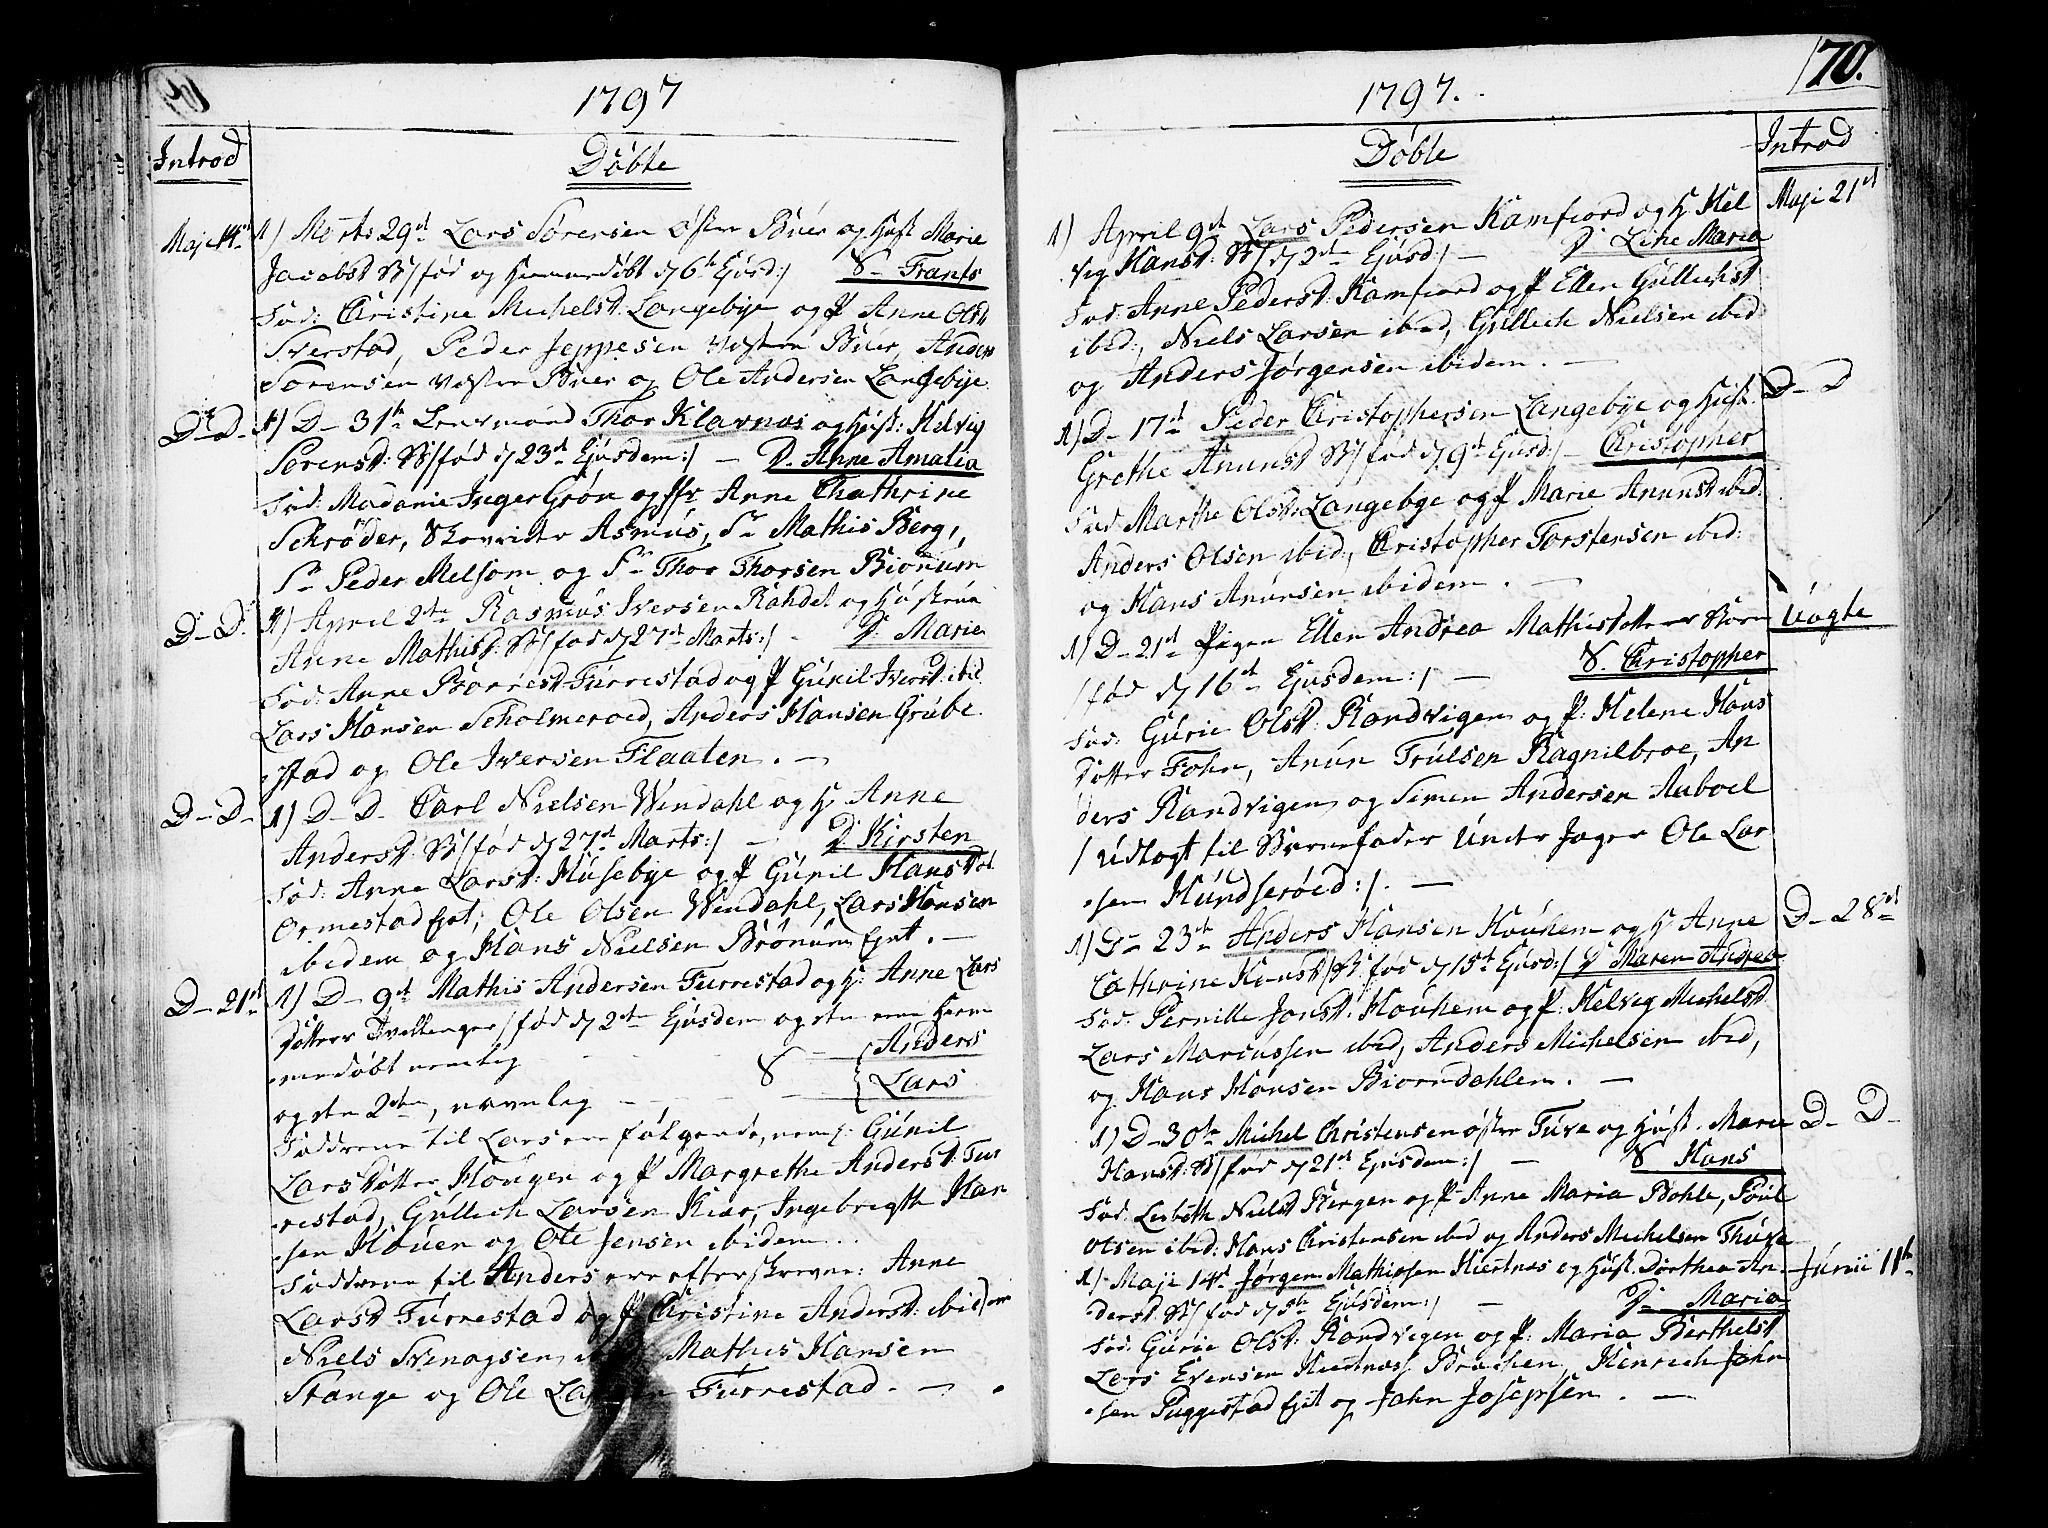 1797
Introd
Döbte
Maji 14de 1) Marts 29de Lars Sörensen östre Buer og Hust Marie
Jacobsd: B/ föd og hiemmedöbt d 6te Ejusd:/ S. Frants
Fad: Christine Michelsd: Langebye og P Anne Olsd:
Sverstad, Peder Jeppesen vestre Buer, Anders
Sorensen vestre Buer og Ole Andersen Langebye.
D - D. 1) D - 31te Lensmand Thor Klavnæs og Hust: Helvig
Sorensd: B/ föd d 23de Ejusdem:/ - D. Anne Amalia
Fad: Madame Inger Grön og Jfr Anne Chathrine
Schröder, Skovrider Asmus, Sr Mathis Berg,
Sr Peder Melsom og Sr Thor Thorsen Biönnum
D - D. 1) April 2den Rasmus Iversen Rahdel og Hustrue
Anne Mathisd: B/ föd d 27de Marts:/ - D. Marie
Fad: Anne Borresd: Furrestad og P Gunil Iversd: ibid.
Lars Hansen Scholmeroed, Anders Hansen Grube
stad og Ole Iversen Flaaten. -
D - D - 1) D - D - Carl Nielsen Wendahl og H Anne
Andersd: B/ föd d 27de Marts:/ - D Kirsten
Fad: Anne Larsd: Husebye og P Gunil Hansd:
Ormestad Ejet; Ole Olsen Wendahl, Lars Hansen
ibidem og Hans Nielsen Brönum Ejet. -
D - 21de 1) D - 9de Mathis Andersen Furrestad og H: Anne Lars
dotters Tvillinger/ föd d 2den Ejusdem og den ene hiem
medöbt nemlig - - - S - Anders
og den 2den, navnlig - - - Lars
Fadderne til Lars ere fölgende, neml: Gunil
Larsdotter Hougen og P Margrethe Andersd: Fur
restad, Gullich Larsen Kiær, Ingebrigth Han
sen Houen og Ole Jensen ibidem..
Fadderne til Anders ere efterskrevne: Anne
Larsd Furrestad og P Christine Andersd: ibidem
Niels Svenogsen Mathis Hansen
Stange og Ole Larsen Furrestad. -
70.
1797.
Döbte
Introd
1) April 9de Lars Pedersen Kamfiord og H Hel Maji 21de
vig Hansd: B/ d 2den Ejusd:/ - D. Line Maria
Fad: Anne Pedersd: Kamfiord og P Ellen Gullichsd
ibid:, Niels Larsen ibid, Gullich Nielsen ibid
og Anders Jörgensen ibidem. -
1) D - 17de Peder Christophersen Langebye og Hust. D - D
Grethe Anunsd B/ föd d 9de Ejusd:/ - Christopher
Fad: Marthe Olsd: Langebye og P Marie Anunsd ibid:
Anders Olsen ibid:, Christopher Torstensen ibid:
og Hans Anunsen ibidem. -
1) D - 21de Pigen Ellen Andrea Mathisdotters Barn Uægte
/ föd d 16de Ejusdem:/ - S. Christopher
Fad: Gurie Olsd: Randvigen og P: Helene Hans
dotter Fohn, Anun Trulsen Ragnilbroe, An
ders Randvigen og Simen Andersen Auboel
/ Udlagt til Barnefader Under Jager Ole Lar
sen Hundseröed:/. -
1) D - 23de Anders Hansen Houhem og H Anne D - 28de
Cathrine Hansd /B. föd d 15de Ejusd:/ D Maren Andrea
Fad: Pernille Jonsd. Houhem og P: Helvig Michelsd
Lars Marcussen ibid, Anders Michelsen ibid,
og Hans Hansen Biorndahlen. -
1) D - 30te Michel Christensen östre Tuve og Hust. Maria D - D -
Hansd: B/ föd d 21de Ejusdem:/ - S Hans
Fad: Lisbeth Nielsd Bergen og P Anne Maria Bohle, Poul
Olsen ibid: Hans Christensen ibid og Anders Michelsen Thuve
1) Maji 14de Jörgen Mathissen Hiertnæs og Hust. Dorthea An- Junii 11te
dersd: B/ föd d 5te Ejusdem:/ - D. Maria
Fad: Gurie Olsd: Randvigen og P. Maria Berthelsd
Lars Evensen Hiertnæs Brachen, Henrich John
sen Puggestad Ejet og John Josepsen. -